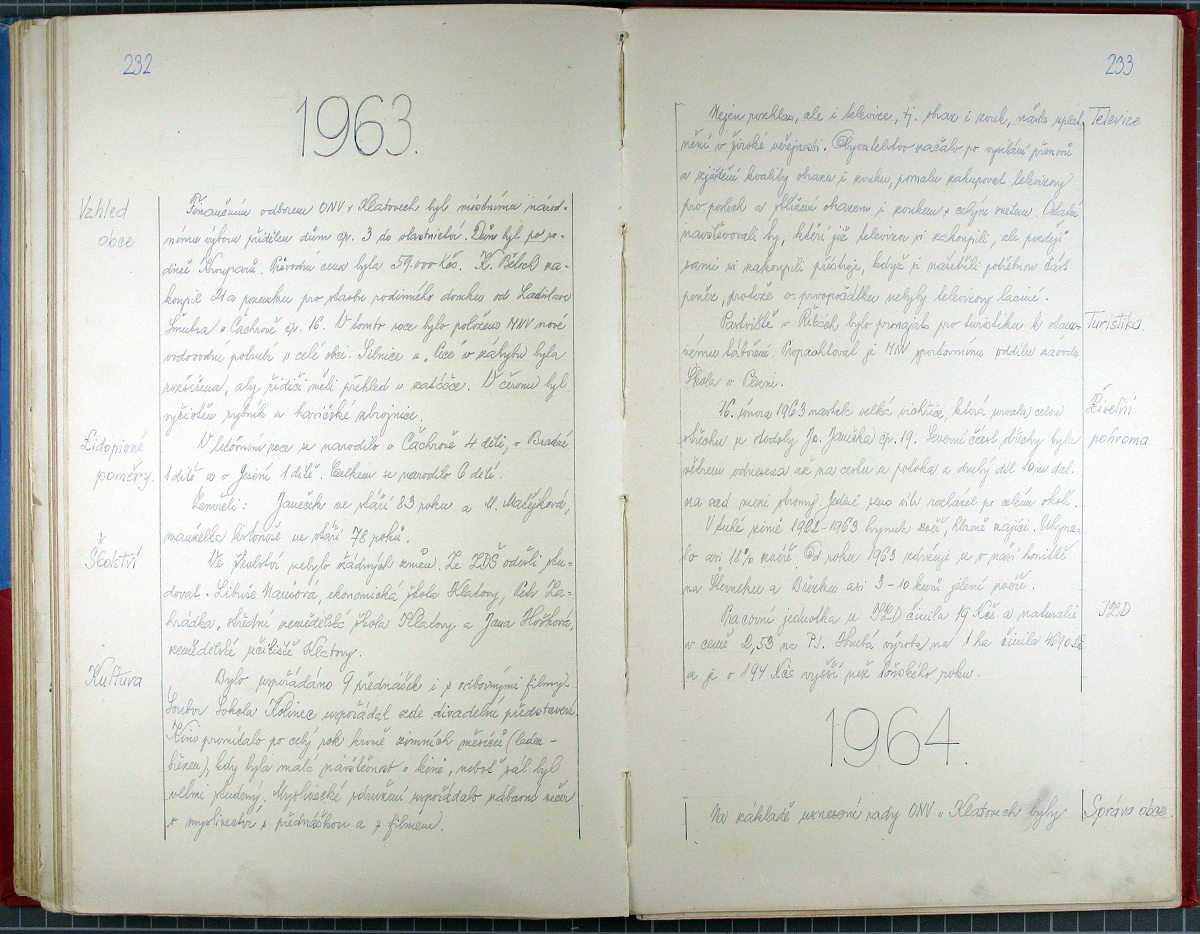 232
1963.
Vzhled
obce
Finančním odborem ONV v Klatovech byl místnímu národ-
nímu výboru přidělen dům čp. 3 do vlastnictví. Dům byl po ro-
dině Krouparů. Původní cena byla 59.000 Kčs. K. Běloch za-
koupil 21a pozemku pro stavbu rodinného domku od Ladislava
Šmukra v Čachrově čp. 16. V tomto roce bylo položeno MNV nové
vodovodní potrubí v celé obci. Silnice u "Pící" v záhybu byla
rozšířena, aby řidiči měli přehled v zatáčce. V červnu byl
vyčištěn rybník u hasičské zbrojnice.
Lidopisné
poměry.
V letošním roce se narodilo v Čachrově 4 děti, v Brazné
1 dítě a v Jesení 1 dítě. Celkem se narodilo 6 dětí.
Zemřeli: Janeček ve stáří 83 roku a M. Matějková,
manželka ve stáří 78 roků.
Školství
Ve školství nebylo žádných změn. Ze ZDŠ odešli stu-
dovat - Libuše ekonomická škola Klatovy, Petr Za-
hrádka, střední zemědělská škola Klatovy a Jana Hošková,
zemědělské učiliště Klatovy.
Kultura
Bylo uspořádáno 9 přednášek i s odbornými filmy.
Soubor Sokola Kolinec uspořádal zde divadelní představení.
Kino promítalo po celý rok kromě zimních měsíců (leden -
březen), kdy byla malá návštěvnost v kině, neboť sál byl
velmi studený. Myslivecké sdružení uspořádalo zábavný večer
o myslivectví s přednáškou a s filmem.
233
Nejen rozhlas, ale i televize, tj. obraz i zvuk, našla uplat-
Televize
nění v široké veřejnosti. Obyvatelstvo začalo po vyzírání přenosů
a zjištění kvality obrazu i zvuku, pomalu zakupovat televizory
pro poslech a sblížení obrazem i zvukem s celým světem. Ostatní
navštěvovali ty, kteří již televizor si zakoupili, ale později
sami si zakoupili přístroje, když si našetřili potřebnou část
peněz, protože v prvopočátku nebyly televizory laciné.
Pastviště v bylo pronajato pro turistiku k stano-
Turistika.
vému táboření. Propachtoval je MNV sportovnímu oddílu závodu
Škoda v Plzni.
16. února 1963 nastala velká vichřice, která srvala celou
Živelní
střechu u stodoly Jo. Janečka čp. 19. Severní část střechy byla
pohroma
větrem odnesena až na cestu u potoka a druhý díl 10 m dal.
na sad mezi stromy. Jediné seno vítr rozházel po celém okolí.
V tuhé zimě 1962-1963 hynula zvěř, hlavně zajíci. Uhynu-
lo asi 18% zvěře. Od roku 1963 zdržuje se v naší honitbě
na Šterneku a Březku asi 3-10 kusů jelení zvěře.
Pracovní jednotka u JZD činila 19 Kčs a naturálie
JZD
v ceně 2,53 na PJ. Hrubá výroba na 1 ha činila 4690 Kčs
a je o 194 Kčs vyšší než loňského roku.
1964.
Na základě usnesení rady ONV v Klatovech byly
Správa obce.